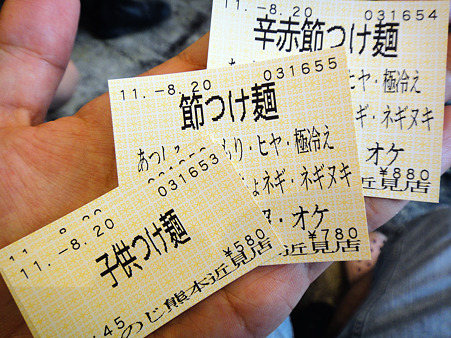 11.-8.20 031654
辛赤節つけ麺
ヒヤ・極冷え
ネギ・ネギヌキ
オケ
¥880
近見店
11.-8.20 031655
節つけ麺
あつ
もり・ヒヤ・極冷え
ネギ・ネギヌキ
・オケ
¥780
近見店
031653
11.-8.20
子供つけ麺
¥580
45
のじ熊本近見店